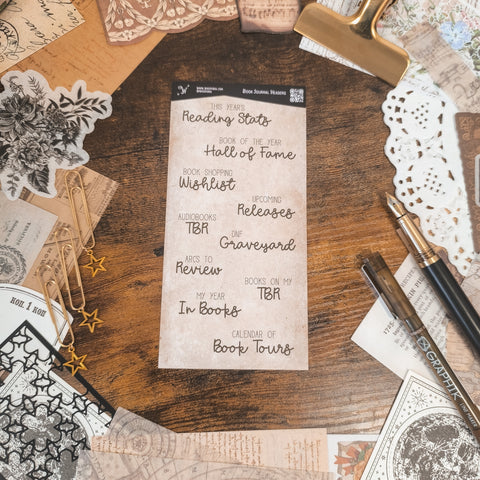 BOOK JOURNAL HEADERS
THIS YEAR'S
Reading Stats
BOOK OF THE YEAR
Hall of Fame
BOOK SHOPPING
Wishlist
UPCOMING
Releases
AUDIOBOOKS
TBR
DNF
Graveyard
ARCS TO
Review
BOOKS ON MY
TBR
MY YEAR
In Books
CALENDAR OF
Book Tours
КОП. 1 КОП
GRAPHIK